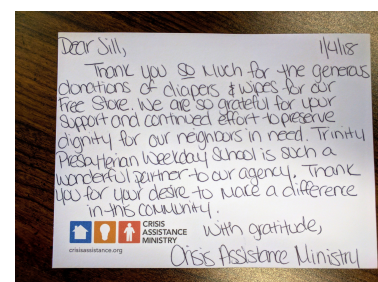 Dear Jill, 1/4/18
Thank you so much for the generous
donations of diapers & wipes for our
Free Store. We are so grateful for your
support and continued effort to preserve
dignity for our neighbors in need. Trinity
Presbyterian Weekday School is such a
wonderful partner to our agency. Thank
you for your desire to make a difference
in this community.
With gratitude,
Crisis Assistance Ministry
CRISIS
ASSISTANCE
MINISTRY
crisisassistance.org